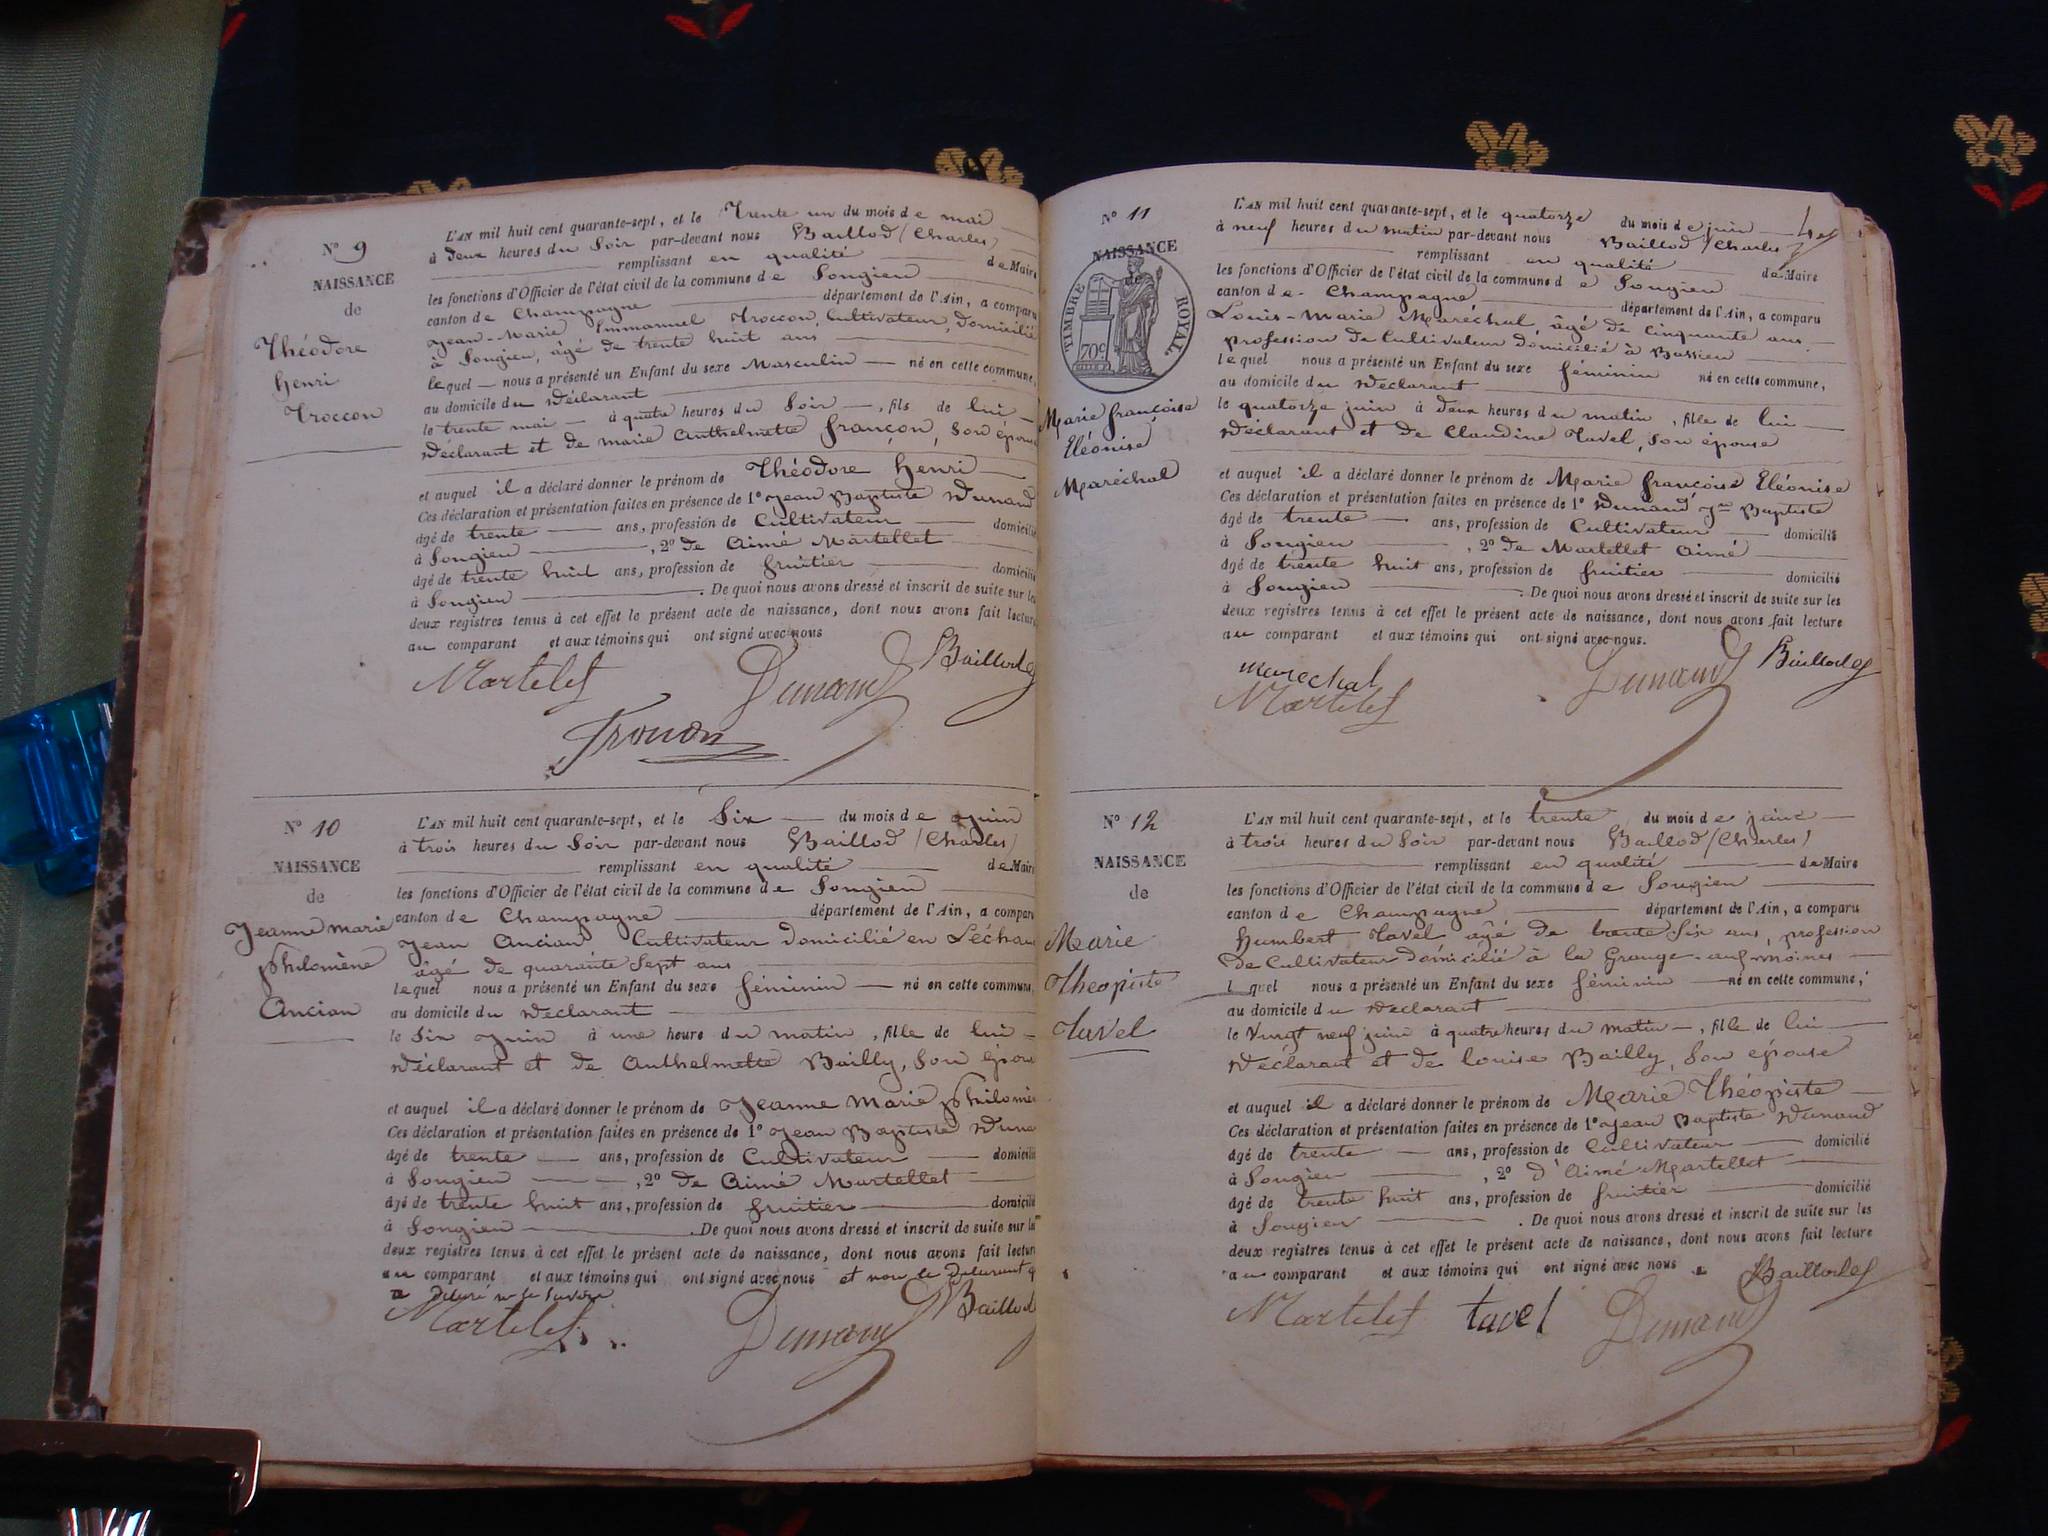 N° 9
NAISSANCE
de
Théodore
henri
Troccon
L'AN mil huit cent quarante-sept, et le Trente un du mois de mai
à deux heures du Soir par-devant nous Baillod (Charles)
remplissant en qualité de Maire
les fonctions d'Officier de l'état civil de la commune de Songieu
canton de Champagne département de l'Ain, a comparu
Jean-Marie Emmanuel Troccon, Cultivateur, domicilié
à Songieu, âgé de trente huit ans
lequel nous a présenté un Enfant du sexe Masculin né en cette commune,
au domicile du Déclarant
le trente mai à quatre heures du Soir, fils de lui
Déclarant et de marie Anthelmette françon, son épouse
et auquel il a déclaré donner le prénom de Théodore henri
Ces déclaration et présentation faites en présence de 1° Jean Baptiste Dunand
âgé de trente ans, profession de Cultivateur domicilié
à Songieu, 2° de Aimé Martellet
âgé de trente huit ans, profession de fruitier domicilié
à Songieu. De quoi nous avons dressé et inscrit de suite sur les
deux registres tenus à cet effet le présent acte de naissance, dont nous avons fait lecture
au comparant et aux témoins qui ont signé avec nous
Martelet Dunand Baillod
Troccon
N° 10
NAISSANCE
de
Jeanne marie
philomène
Ancian
L'AN mil huit cent quarante-sept, et le Six du mois de Juin
à trois heures du Soir par-devant nous Baillod (Charles)
remplissant en qualité de Maire
les fonctions d'Officier de l'état civil de la commune de Songieu
canton de Champagne département de l'Ain, a comparu
Jean Ancian Cultivateur domicilié en Léchau
âgé de quarante Sept ans
lequel nous a présenté un Enfant du sexe féminin né en cette commune,
au domicile du Déclarant
le Six Juin à une heure du matin, fille de lui
Déclarant et de Anthelmette Bailly, Son épouse
et auquel il a déclaré donner le prénom de Jeanne Marie philomène
Ces déclaration et présentation faites en présence de 1° Jean Baptiste Duna
âgé de trente ans, profession de Cultivateur domicilié
à Songieu, 2° de Aimé Martellet
âgé de trente huit ans, profession de fruitier domicilié
à Songieu. De quoi nous avons dressé et inscrit de suite sur les
deux registres tenus à cet effet le présent acte de naissance, dont nous avons fait lecture
au comparant et aux témoins qui ont signé avec nous et non le Déclarant q
a Déclaré ne le savoir
Martelet Dunand Baillod
N° 11
NAISSANCE
de
TIMBRE ROYAL
70c
Marie françoise
Eléonise
Maréchal
L'AN mil huit cent quarante-sept, et le quatorze du mois de juin
à neuf heures du matin par-devant nous Baillod (Charles)
remplissant en qualité de Maire
les fonctions d'Officier de l'état civil de la commune de Songieu
canton de Champagne département de l'Ain, a comparu
Louis-Marie Maréchal, âgé de cinquante ans
profession de Cultivateur domicilié à Bassieu
lequel nous a présenté un Enfant du sexe féminin né en cette commune,
au domicile du Déclarant
le quatorze juin à deux heures du matin, fille de lui
Déclarant et de Claudine Tavel, son épouse
et auquel il a déclaré donner le prénom de Marie françoise Eléonise
Ces déclaration et présentation faites en présence de 1° Dunand Jn Baptiste
âgé de trente ans, profession de Cultivateur domicilié
à Songieu, 2° de Martellet Aimé
âgé de trente huit ans, profession de fruitier domicilié
à Songieu. De quoi nous avons dressé et inscrit de suite sur les
deux registres tenus à cet effet le présent acte de naissance, dont nous avons fait lecture
au comparant et aux témoins qui ont signé avec nous.
marechal
Martelet Dunand Baillod
N° 12
NAISSANCE
de
Marie
Theopiste
Tavel
L'AN mil huit cent quarante-sept, et le trente du mois de juin
à trois heures du Soir par-devant nous Baillod (Charles)
remplissant en qualité de Maire
les fonctions d'Officier de l'état civil de la commune de Songieu
canton de Champagne département de l'Ain, a comparu
Humbert Tavel âgé de trente Six ans, profession
de Cultivateur domicilié à la Grange-aux-moines
lequel nous a présenté un Enfant du sexe féminin né en cette commune,
au domicile du Déclarant
le Vingt neuf juin à quatre heures du matin, fille de lui
Déclarant et de louise Bailly, son épouse
et auquel il a déclaré donner le prénom de Marie Théopiste
Ces déclaration et présentation faites en présence de 1° Jean Baptiste Dunand
âgé de trente ans, profession de Cultivateur domicilié
à Songieu, 2° d'Aimé Martellet
âgé de trente huit ans, profession de fruitier domicilié
à Songieu. De quoi nous avons dressé et inscrit de suite sur les
deux registres tenus à cet effet le présent acte de naissance, dont nous avons fait lecture
au comparant et aux témoins qui ont signé avec nous
Baillod
Martelet tavel Dunand